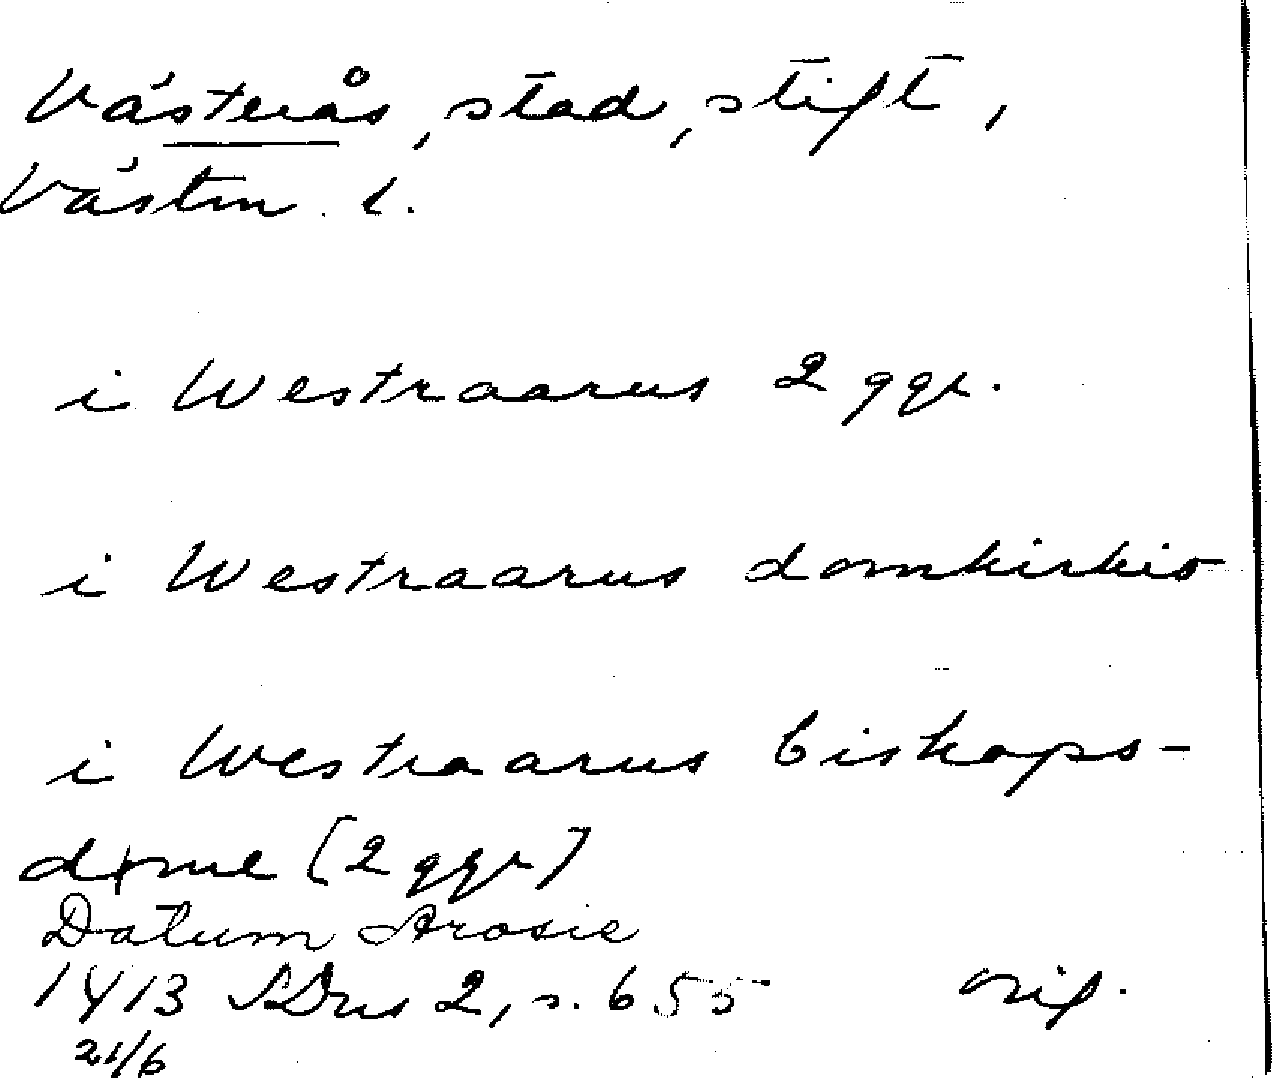 Västerås, stad, stift,
Västm. l.
i Westraarus 2 ggr.
i Westraarus domkirkio
i Westraarus biskops-
døme [2 ggr]
Datum Arosie
1413 SDns 2, s. 655 orig.
21/6